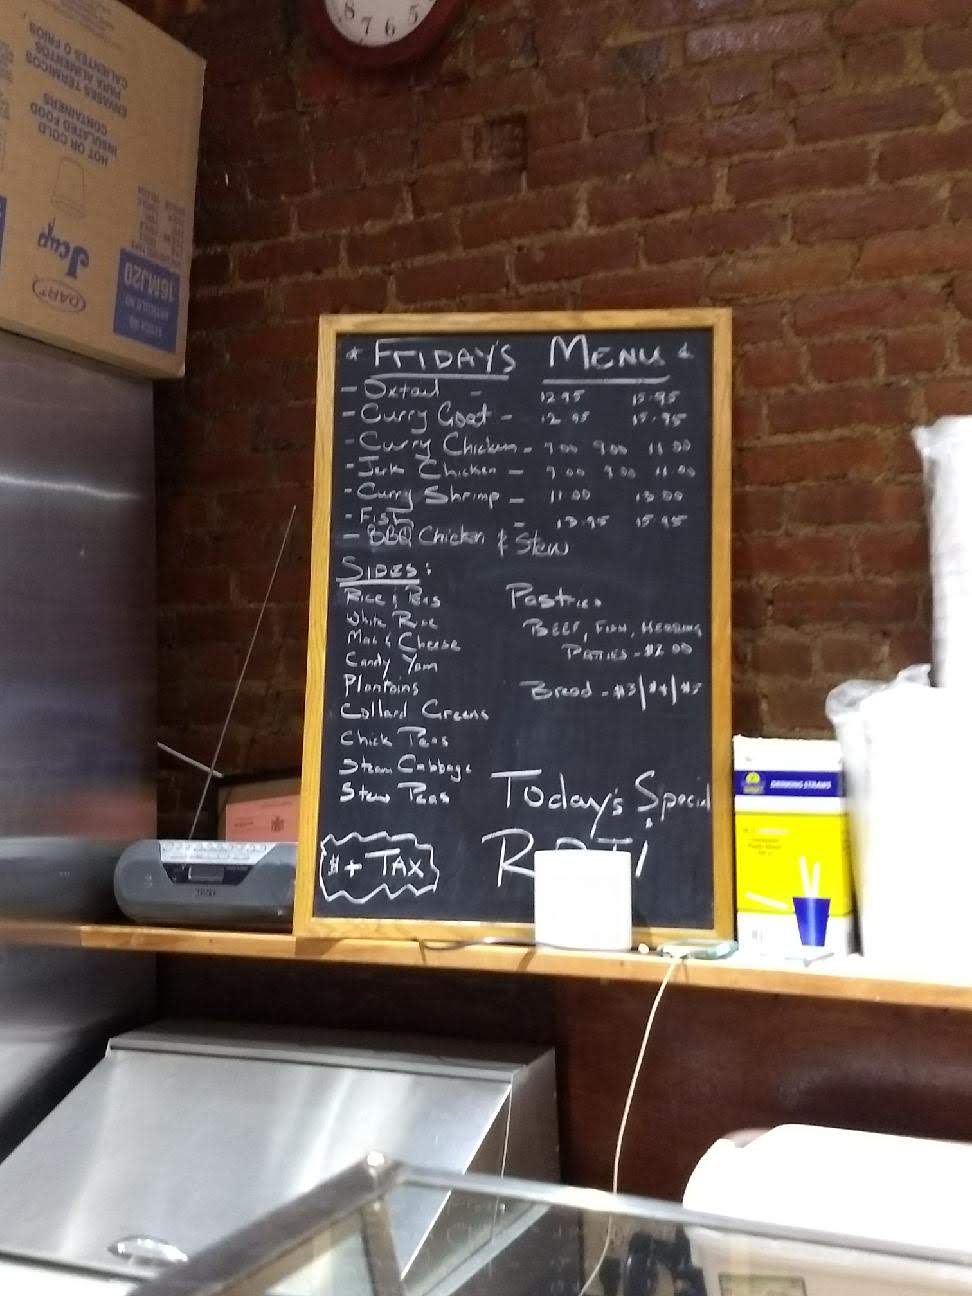 8 7 6 5
HOT OR COLD
INSULATED FOOD
CONTAINERS
ENVASES TÉRMICOS
PARA ALIMENTOS
CALIENTES O FRÍOS
DART
J cup
16MJ20
* FRIDAY'S MENU *
- Oxtail - 12.95 15.95
- Curry Goat - 12.95 15.95
- Curry Chicken - 7.00 9.00 11.00
- Jerk Chicken - 7.00 9.00 11.00
- Curry Shrimp - 11.00 13.00
- Fish - 13.95 15.95
- BBQ Chicken & Stew
SIDES:
Rice & Peas
White Rice
Mac & Cheese
Candy Yam
Plantains
Collard Greens
Chick Peas
Steam Cabbage
Stew Peas
Pastries
BEEF, FISH, HERRING
PATTIES - $2.00
Bread - $3/$4/$5
Today's Special
ROTI
$ + TAX
DRINKING STRAWS